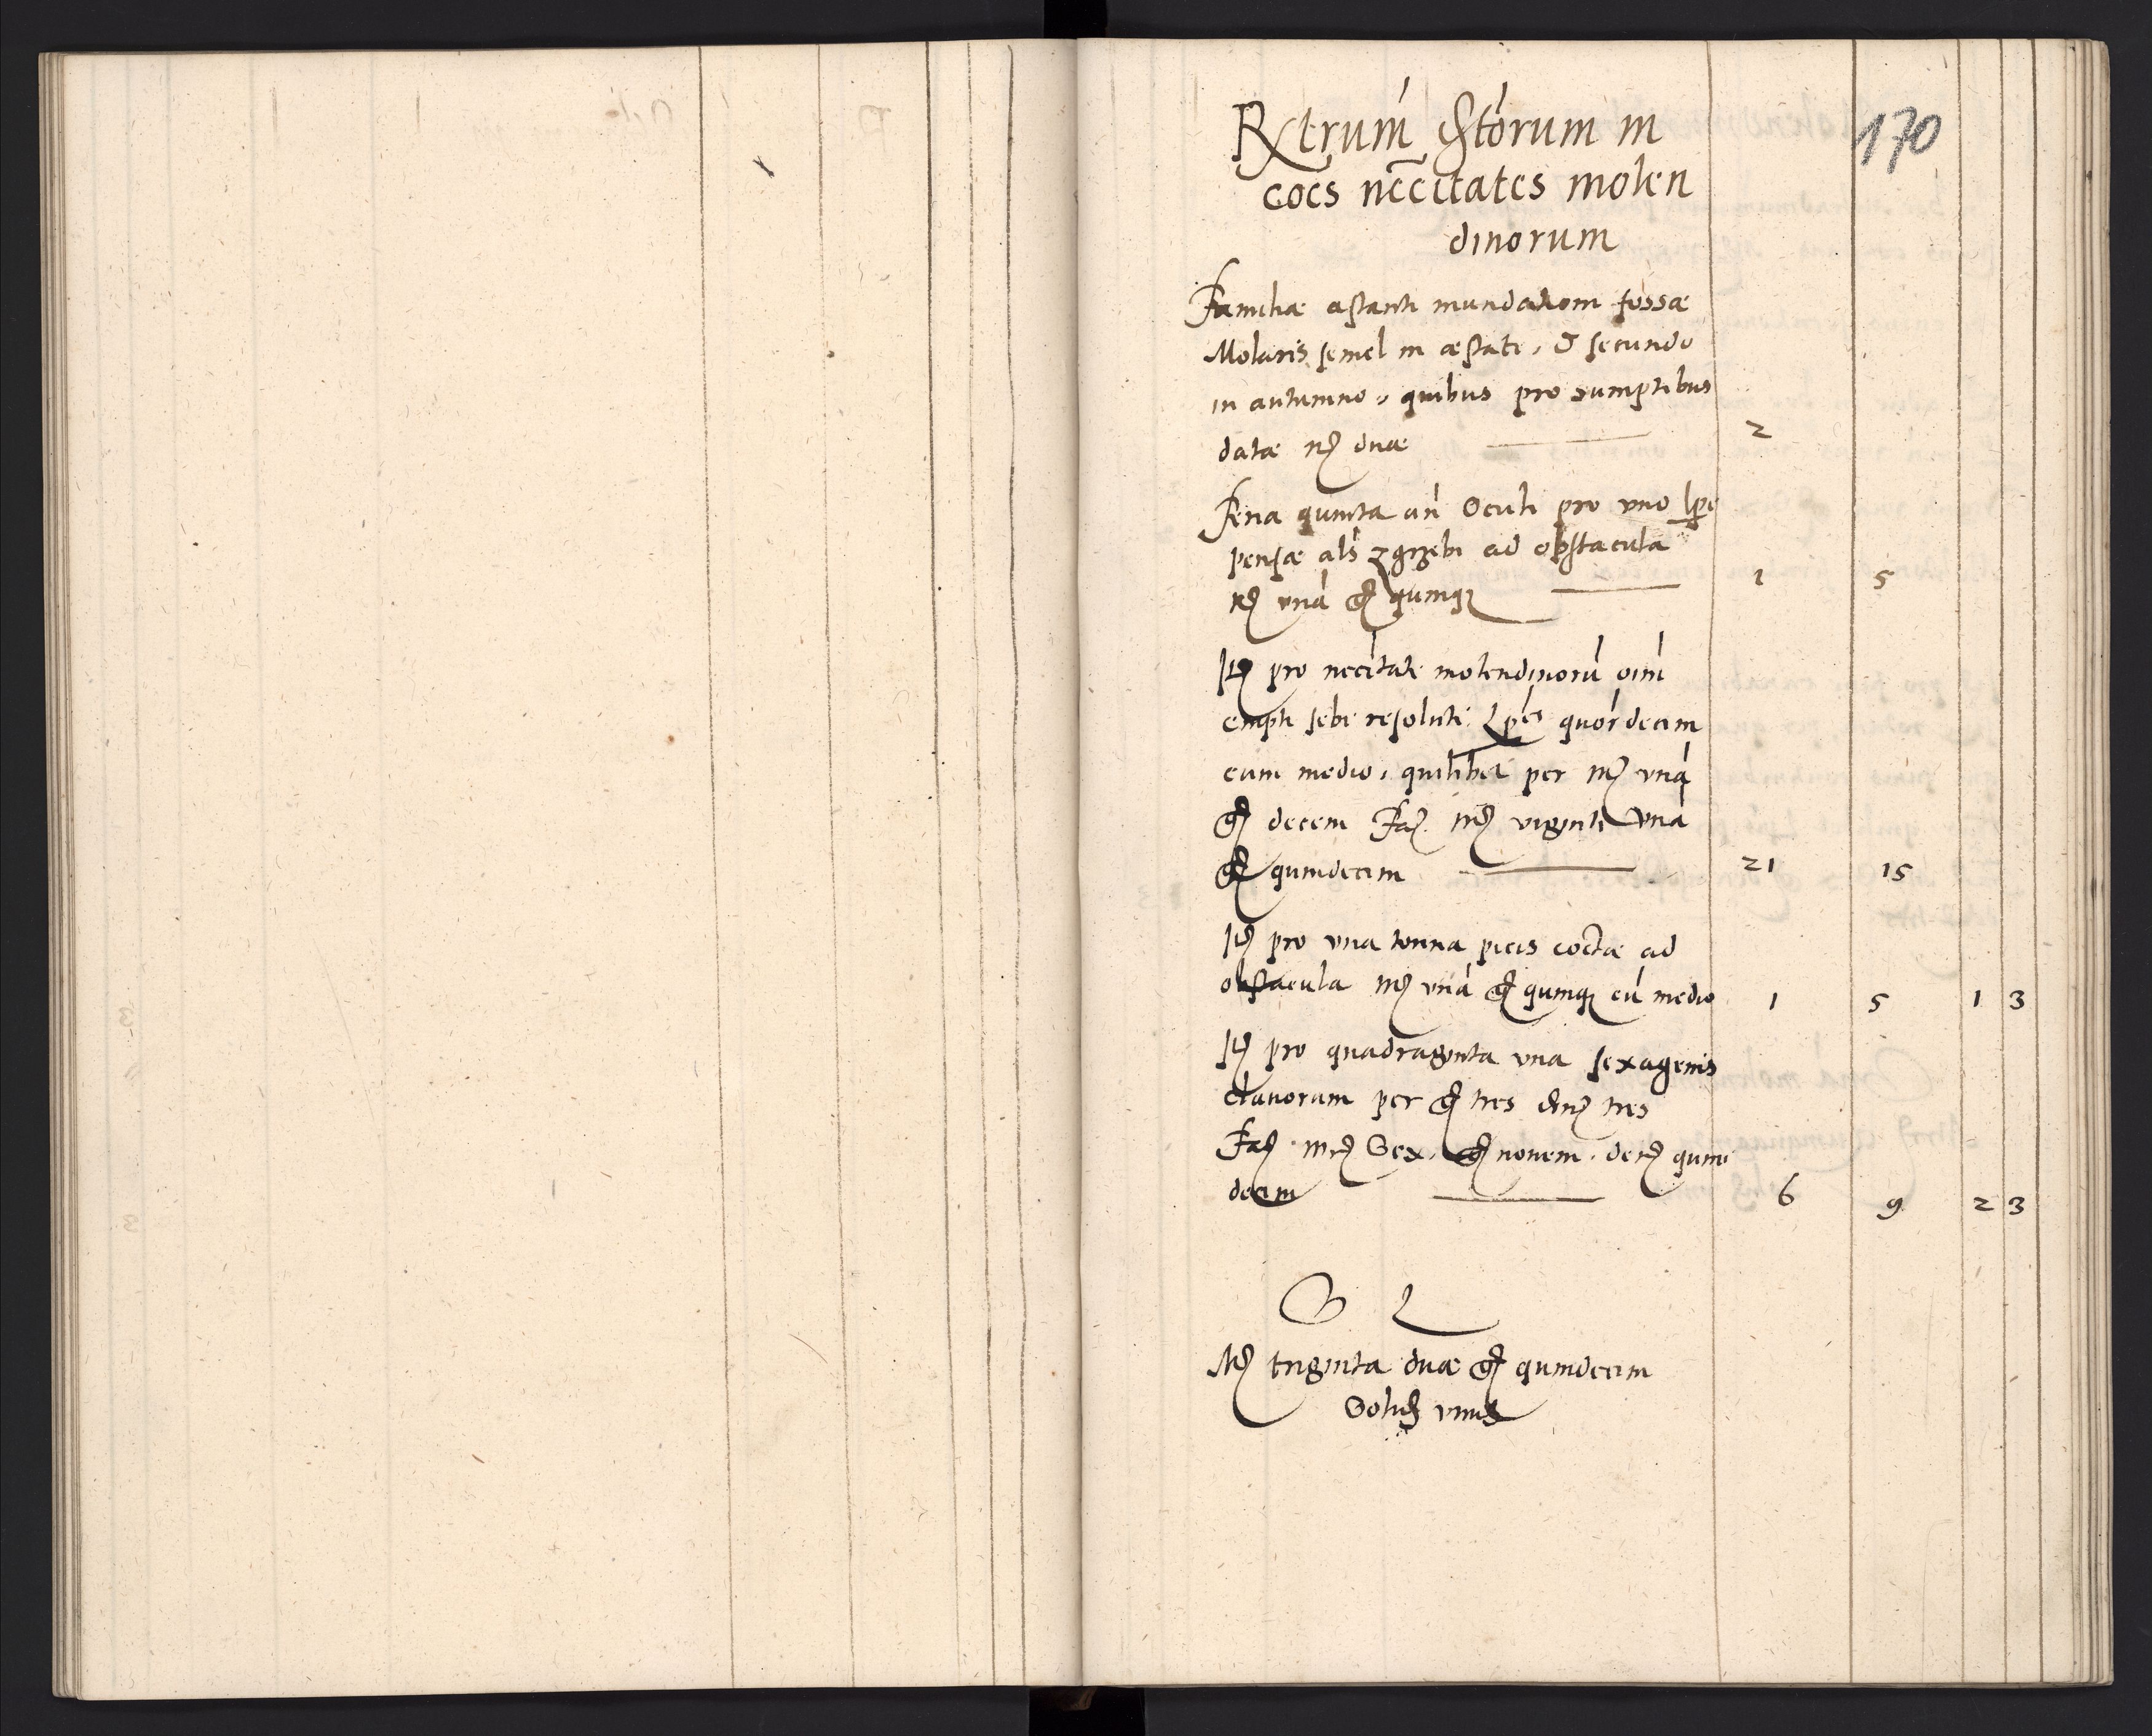 170
Rxtrum Extorum in
coes nccitates molen
dinorum
Familiæ astanti mundationi fossæ
Molaris semel in æstate, & secundo
in autumno, quibus pro sumptibus
datæ mr duæ 2
Feria quinta an Oculi pro vno lpe
pensæ als zgrzebi ad obstacula
mr vna gr quinq 1 5
It pro necitate molendinoru oim
empti sebi resoluti lpes quordecim
cum medio, quilibet per mr vna
gr decem Fa mr viginti vna
gr quindecim 21 15
It pro vna tonna picis coctæ ad
obstacula mr vna gr quinq cu medio 1 5 1 3
It pro quadraginta vna sexagenis
clauorum per gr tres den tres
Fa mr Sex, gr nonem, den quin
decim 6 9 2 3
S L
Mr triginta duæ gr quindecim
Solid vnus